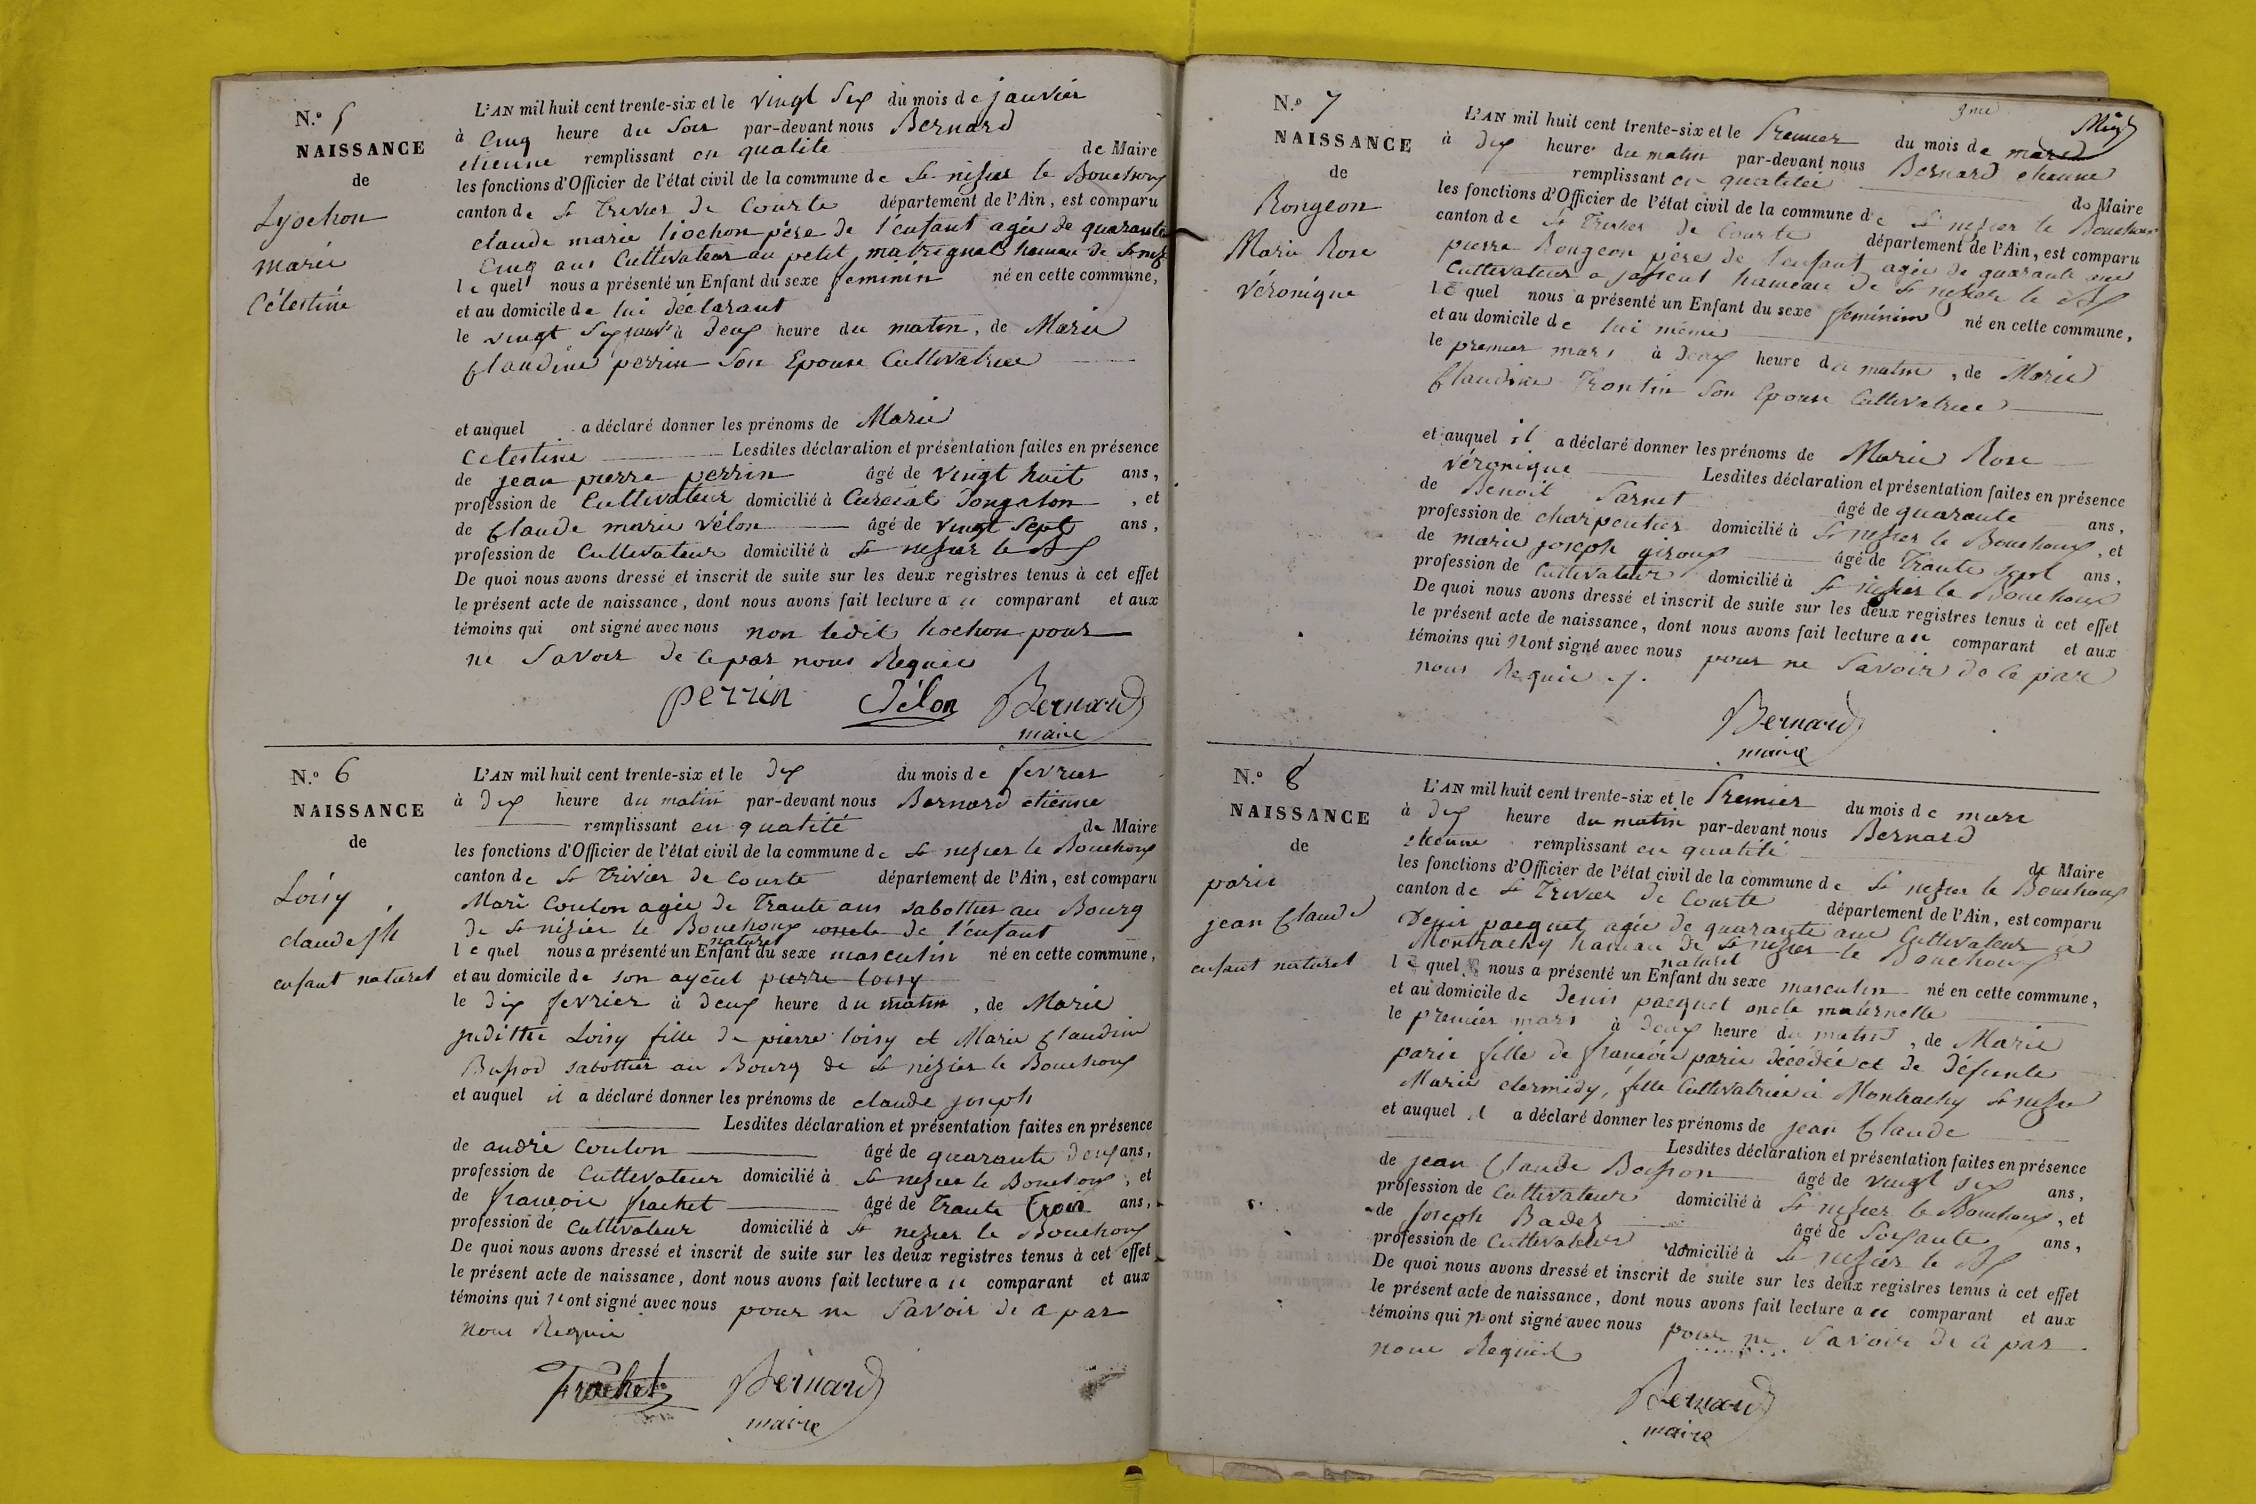 N.º 5
NAISSANCE
de
Lyochon
marie
Célestine
L'AN mil huit cent trente-six et le vingt six du mois de janvier
à cinq heure du soir par-devant nous Bernard
etienne remplissant en qualité de Maire
les fonctions d'Officier de l'état civil de la commune de St nizier le Bouchoux
canton de St Trivier de Courte département de l'Ain, est comparu
claude marie liochon père de l'enfant agée de quarante
cinq ans Cultivateur au petit hameau de St
lequel nous a présenté un Enfant du sexe feminin né en cette commune,
et au domicile de lui déclarant
le vingt six à deux heure du matin, de Marie
Claudine perrin son Epouse Cultivatrice
et auquel a déclaré donner les prénoms de Marie
Celestine Lesdites déclaration et présentation faites en présence
de jean pierre perrin âgé de vingt huit ans,
profession de Cultivateur domicilié à Curciat Dongalon, et
de Claude marie vélon âgé de vingt sept ans,
profession de Cultivateur domicilié à St nizier le Bx
De quoi nous avons dressé et inscrit de suite sur les deux registres tenus à cet effet
le présent acte de naissance, dont nous avons fait lecture a ce comparant et aux
témoins qui ont signé avec nous non ledit liochon pour
ne Savoir de ce par nous Requie
perrin Vélon Bernard
maire
N.º 6
NAISSANCE
de
Loisy
claude jh
enfant naturel
L'AN mil huit cent trente-six et le dix du mois de fevrier
à dix heure du matin par-devant nous Bernard etienne
remplissant en qualité de Maire
les fonctions d'Officier de l'état civil de la commune de St nizier le Bouchoux
canton de St Trivier de Courte département de l'Ain, est comparu
Marie Coulon agée de Trante ans sabottier au Bourg
de St nizier le Bouchoux oncle de l'enfant
naturel
lequel nous a présenté un Enfant du sexe masculin né en cette commune,
et au domicile de son ayeul pierre loisy
le dix fevrier à deux heure du matin, de Marie
juditte Loisy fille de pierre loisy et Marie Claudine
Busson sabottier au Bourg de St nizier le Bouchoux
et auquel il a déclaré donner les prénoms de claude joseph
Lesdites déclaration et présentation faites en présence
de andré Coulon âgé de quarante deux ans,
profession de Cultivateur domicilié à St nizier le Bouchoux, et
de françois frachet âgé de Trante trois ans,
profession de Cultivateur domicilié à St nizier le Bouchoux
De quoi nous avons dressé et inscrit de suite sur les deux registres tenus à cet effet
le présent acte de naissance, dont nous avons fait lecture a ce comparant et aux
témoins qui n'ont signé avec nous pour ne Savoir de ce par
nous Requie
Frachet Bernard
maire
N.º 7
NAISSANCE
de
Rongeon
Marie Rose
Véronique
L'AN mil huit cent trente-six et le Premier du mois de mars
à dix heure du matin par-devant nous Bernard etienne
remplissant en qualitée de Maire
les fonctions d'Officier de l'état civil de la commune de St nizier le Bouchoux
canton de St Trivier de Courte département de l'Ain, est comparu
pierre Rongeon père de l'enfant agée de quarante ans
Cultivateur a hameau de St nizier le Bx
lequel nous a présenté un Enfant du sexe feminin né en cette commune,
et au domicile de lui même
le premier mars à deux heure du matin, de Marie
Claudine Trontin Son Epouse Cultivatrice
et auquel il a déclaré donner les prénoms de Marie Rose
Véronique Lesdites déclaration et présentation faites en présence
de Benoit Sarnet âgé de quarante ans,
profession de charpentier domicilié à St nizier le Bouchoux, et
de marie joseph giroux âgé de Trante sept ans,
profession de Cultivateur domicilié à St nizier le Bouchoux
De quoi nous avons dressé et inscrit de suite sur les deux registres tenus à cet effet
le présent acte de naissance, dont nous avons fait lecture a ce comparant et aux
témoins qui n'ont signé avec nous pour ne Savoir de ce par
nous Requie
Bernard
maire
N.º 8
NAISSANCE
de
parie
jean Claude
enfant naturel
L'AN mil huit cent trente-six et le Premier du mois de mars
à dix heure du matin par-devant nous Bernard
etienne remplissant en qualité de Maire
les fonctions d'Officier de l'état civil de la commune de St nizier le Bouchoux
canton de St Trivier de Courte département de l'Ain, est comparu
Denis pacquet agée de quarante ans Cultivateur a
Montrachy hameau de St nizier le Bouchoux
naturel
lequel nous a présenté un Enfant du sexe masculin né en cette commune,
et au domicile de Denis pacquet oncle maternelle
le premier mars à deux heure du matin, de Marie
parie fille de françois parie décédée et de Défunte
Marie clermidy, fille Cultivatrice à Montrachy St nizier
et auquel il a déclaré donner les prénoms de jean Claude
Lesdites déclaration et présentation faites en présence
de jean Claude Busson âgé de vingt six ans,
profession de Cultivateur domicilié à St nizier le Bouchoux, et
de joseph Bader âgé de Soixante ans,
profession de Cultivateur domicilié à St nizier le Bx
De quoi nous avons dressé et inscrit de suite sur les deux registres tenus à cet effet
le présent acte de naissance, dont nous avons fait lecture a ce comparant et aux
témoins qui n'ont signé avec nous pour ne Savoir de ce par
nous Requie
Bernard
maire